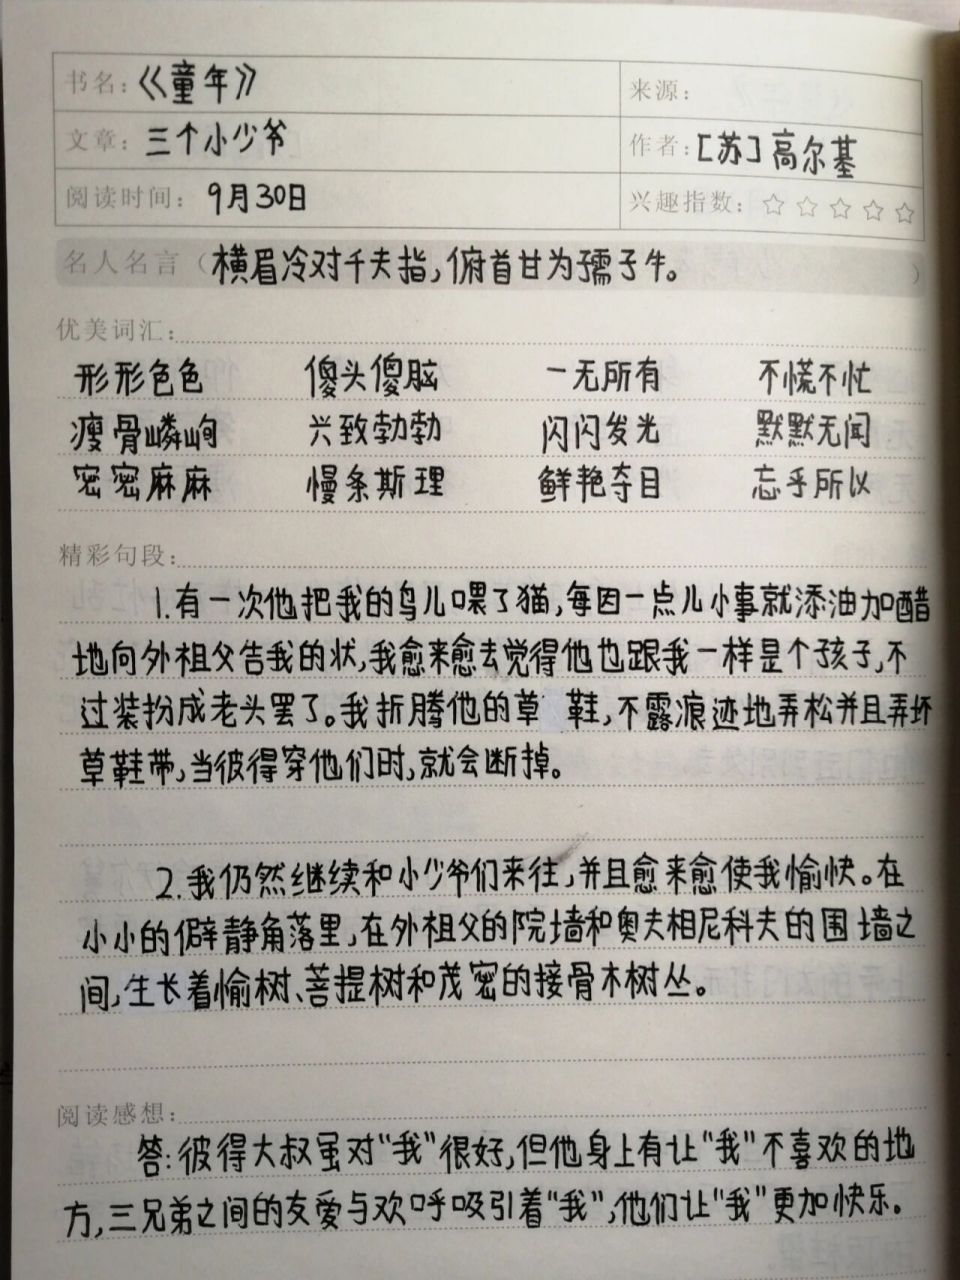 书名：《童年》 来源：
文章：三个小少爷 作者：[苏]高尔基
阅读时间：9月30日 兴趣指数：☆☆☆☆☆
名人名言（横眉冷对千夫指，俯首甘为孺子牛。）
优美词汇：
形形色色 傻头傻脑 一无所有 不慌不忙
瘦骨嶙峋 兴致勃勃 闪闪发光 默默无闻
密密麻麻 慢条斯理 鲜艳夺目 忘乎所以
精彩句段：
1.有一次他把我的鸟儿喂了猫，每因一点儿小事就添油加醋
地向外祖父告我的状，我愈来愈去觉得他也跟我一样是个孩子，不
过装扮成老头罢了。我折腾他的草 鞋，不露痕迹地弄松并且弄坏
草鞋带，当彼得穿他们时，就会断掉。
2.我仍然继续和小少爷们来往，并且愈来愈使我愉快。在
小小的僻静角落里，在外祖父的院墙和奥夫相尼科夫的围墙之
间，生长着愉树、菩提树和茂密的接骨木树丛。
阅读感想：
答：彼得大叔虽对“我”很好，但他身上有让“我”不喜欢的地
方，三兄弟之间的友爱与欢呼吸引着“我”，他们让“我”更加快乐。